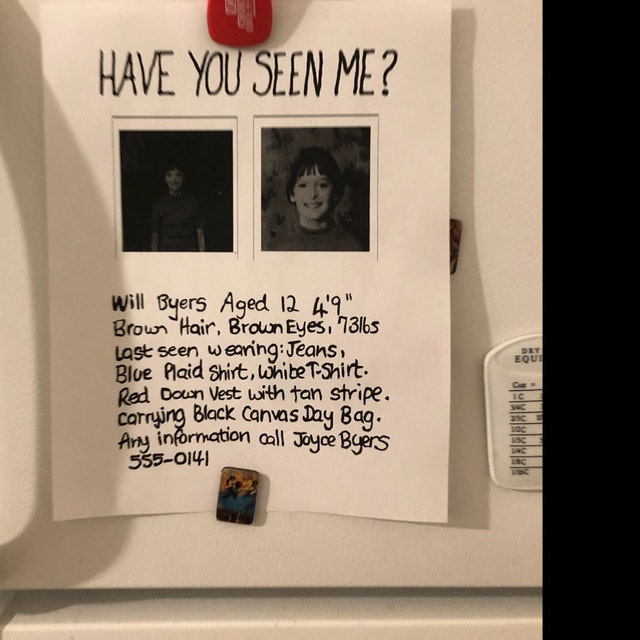 HAVE YOU SEEN ME?
Will Byers Aged 12 4'9"
Brown Hair, Brown Eyes, 73lbs
Last seen wearing: Jeans,
Blue Plaid Shirt, White T-Shirt.
Red Down Vest with tan stripe.
carrying Black Canvas Day Bag.
Any information call Joyce Byers
555-0141
DRY
EQUI
Cup =
1 C
3/4C
2/3C
1/2C
1/3C
1/4C
1/8C
1/16C